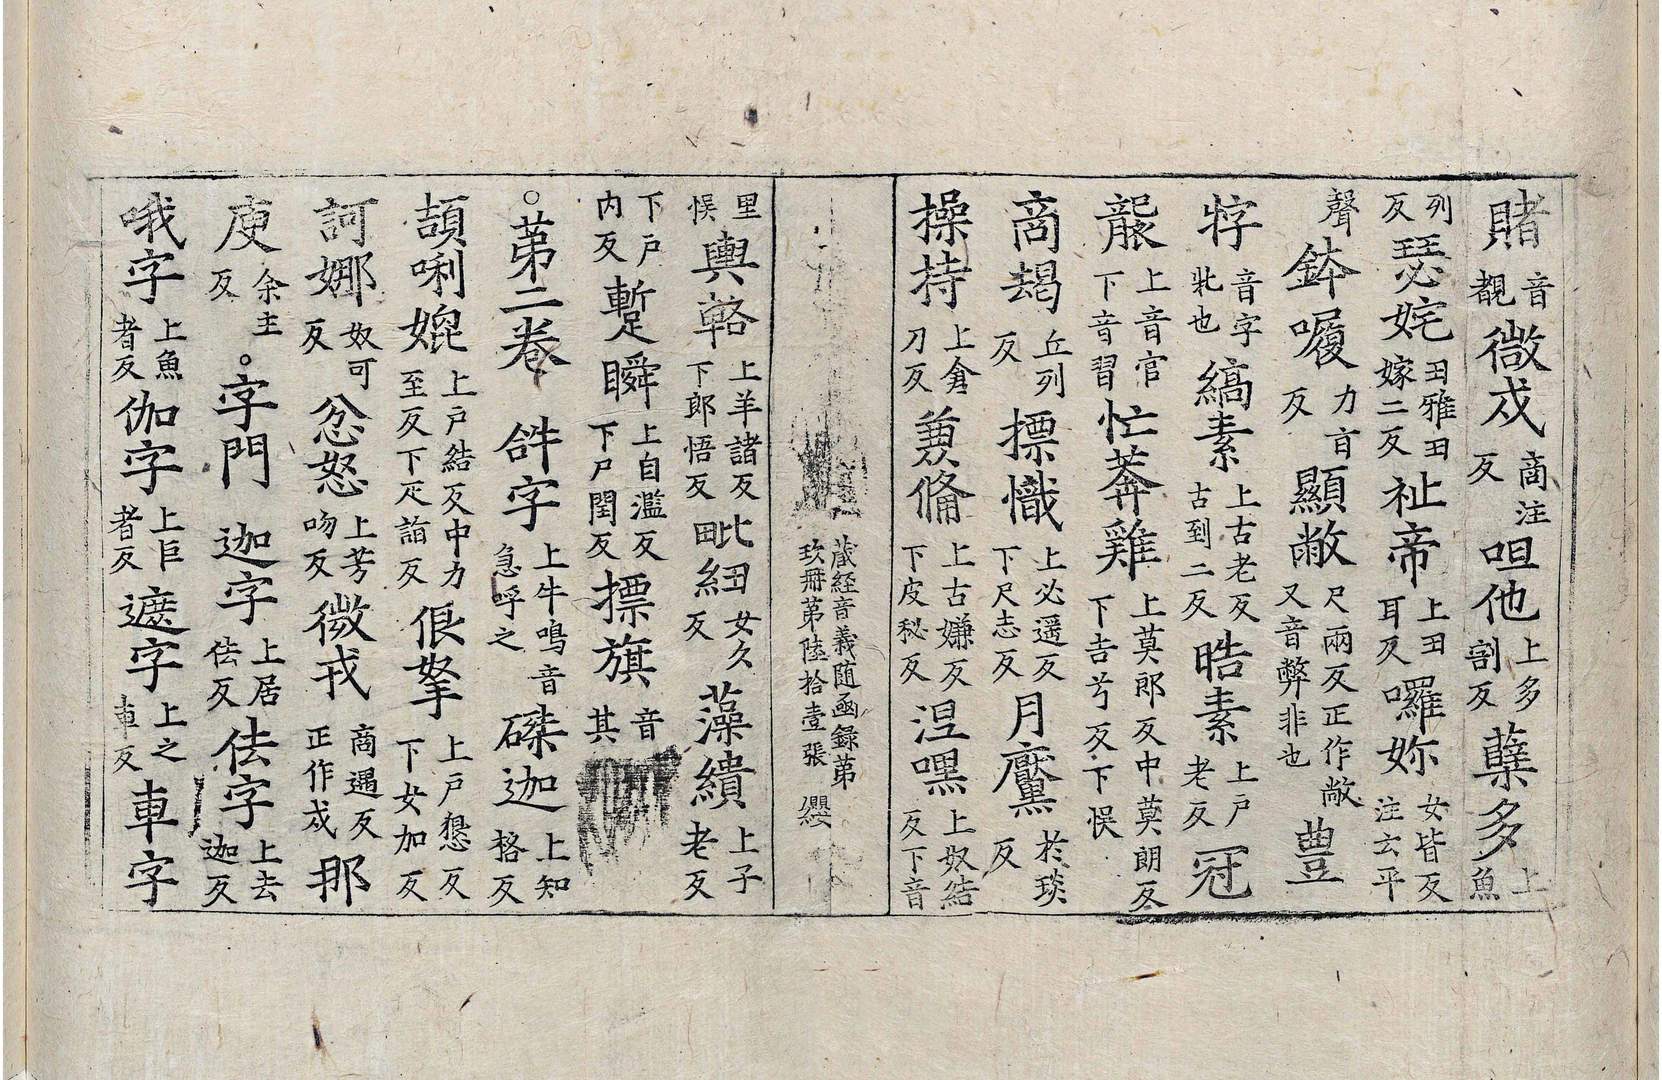 賭音覩微戍商注反呾他上多割反蘖多上魚
列反瑟姹𤰔雅𤰔嫁二反祉帝上𤰔耳反囉妳女皆反注玄平
聲鉢囑力盲反顯敝尺兩反正作敞又音弊非也豊
牸音字牝也縞素上古老反古到二反晧素上戸老反冠
龍上音官下音習忙莽雞上莫郎反中莫朗反下吉兮反下悮
商朅丘列反摽幟上必遥反下尺志反月黡於琰反
操持上倉刀反兼俻上古嫌反下皮秘反涅嘿上奴結反下音
藏經音義随函録第玖冊第陸拾壹張 纓
里悮輿輅上羊諸反下郎悟反毗紐女久反藻繢上子老反
下戸内反蹔瞬上自濫反下尸閏反摽旗音其
。第二卷 𤙖字上牛鳴音急呼之磔迦上知格反
頡唎媲上戸結反中力至反下疋詣反佷拏上戸懇反下女加反
訶娜奴可反忿怒上芳吻反微戎商遇反正作戍那
庾余主反。字門 迦字上居佉反佉字上去迦反
哦字上魚者反伽字上巨者反遮字上之車反車字